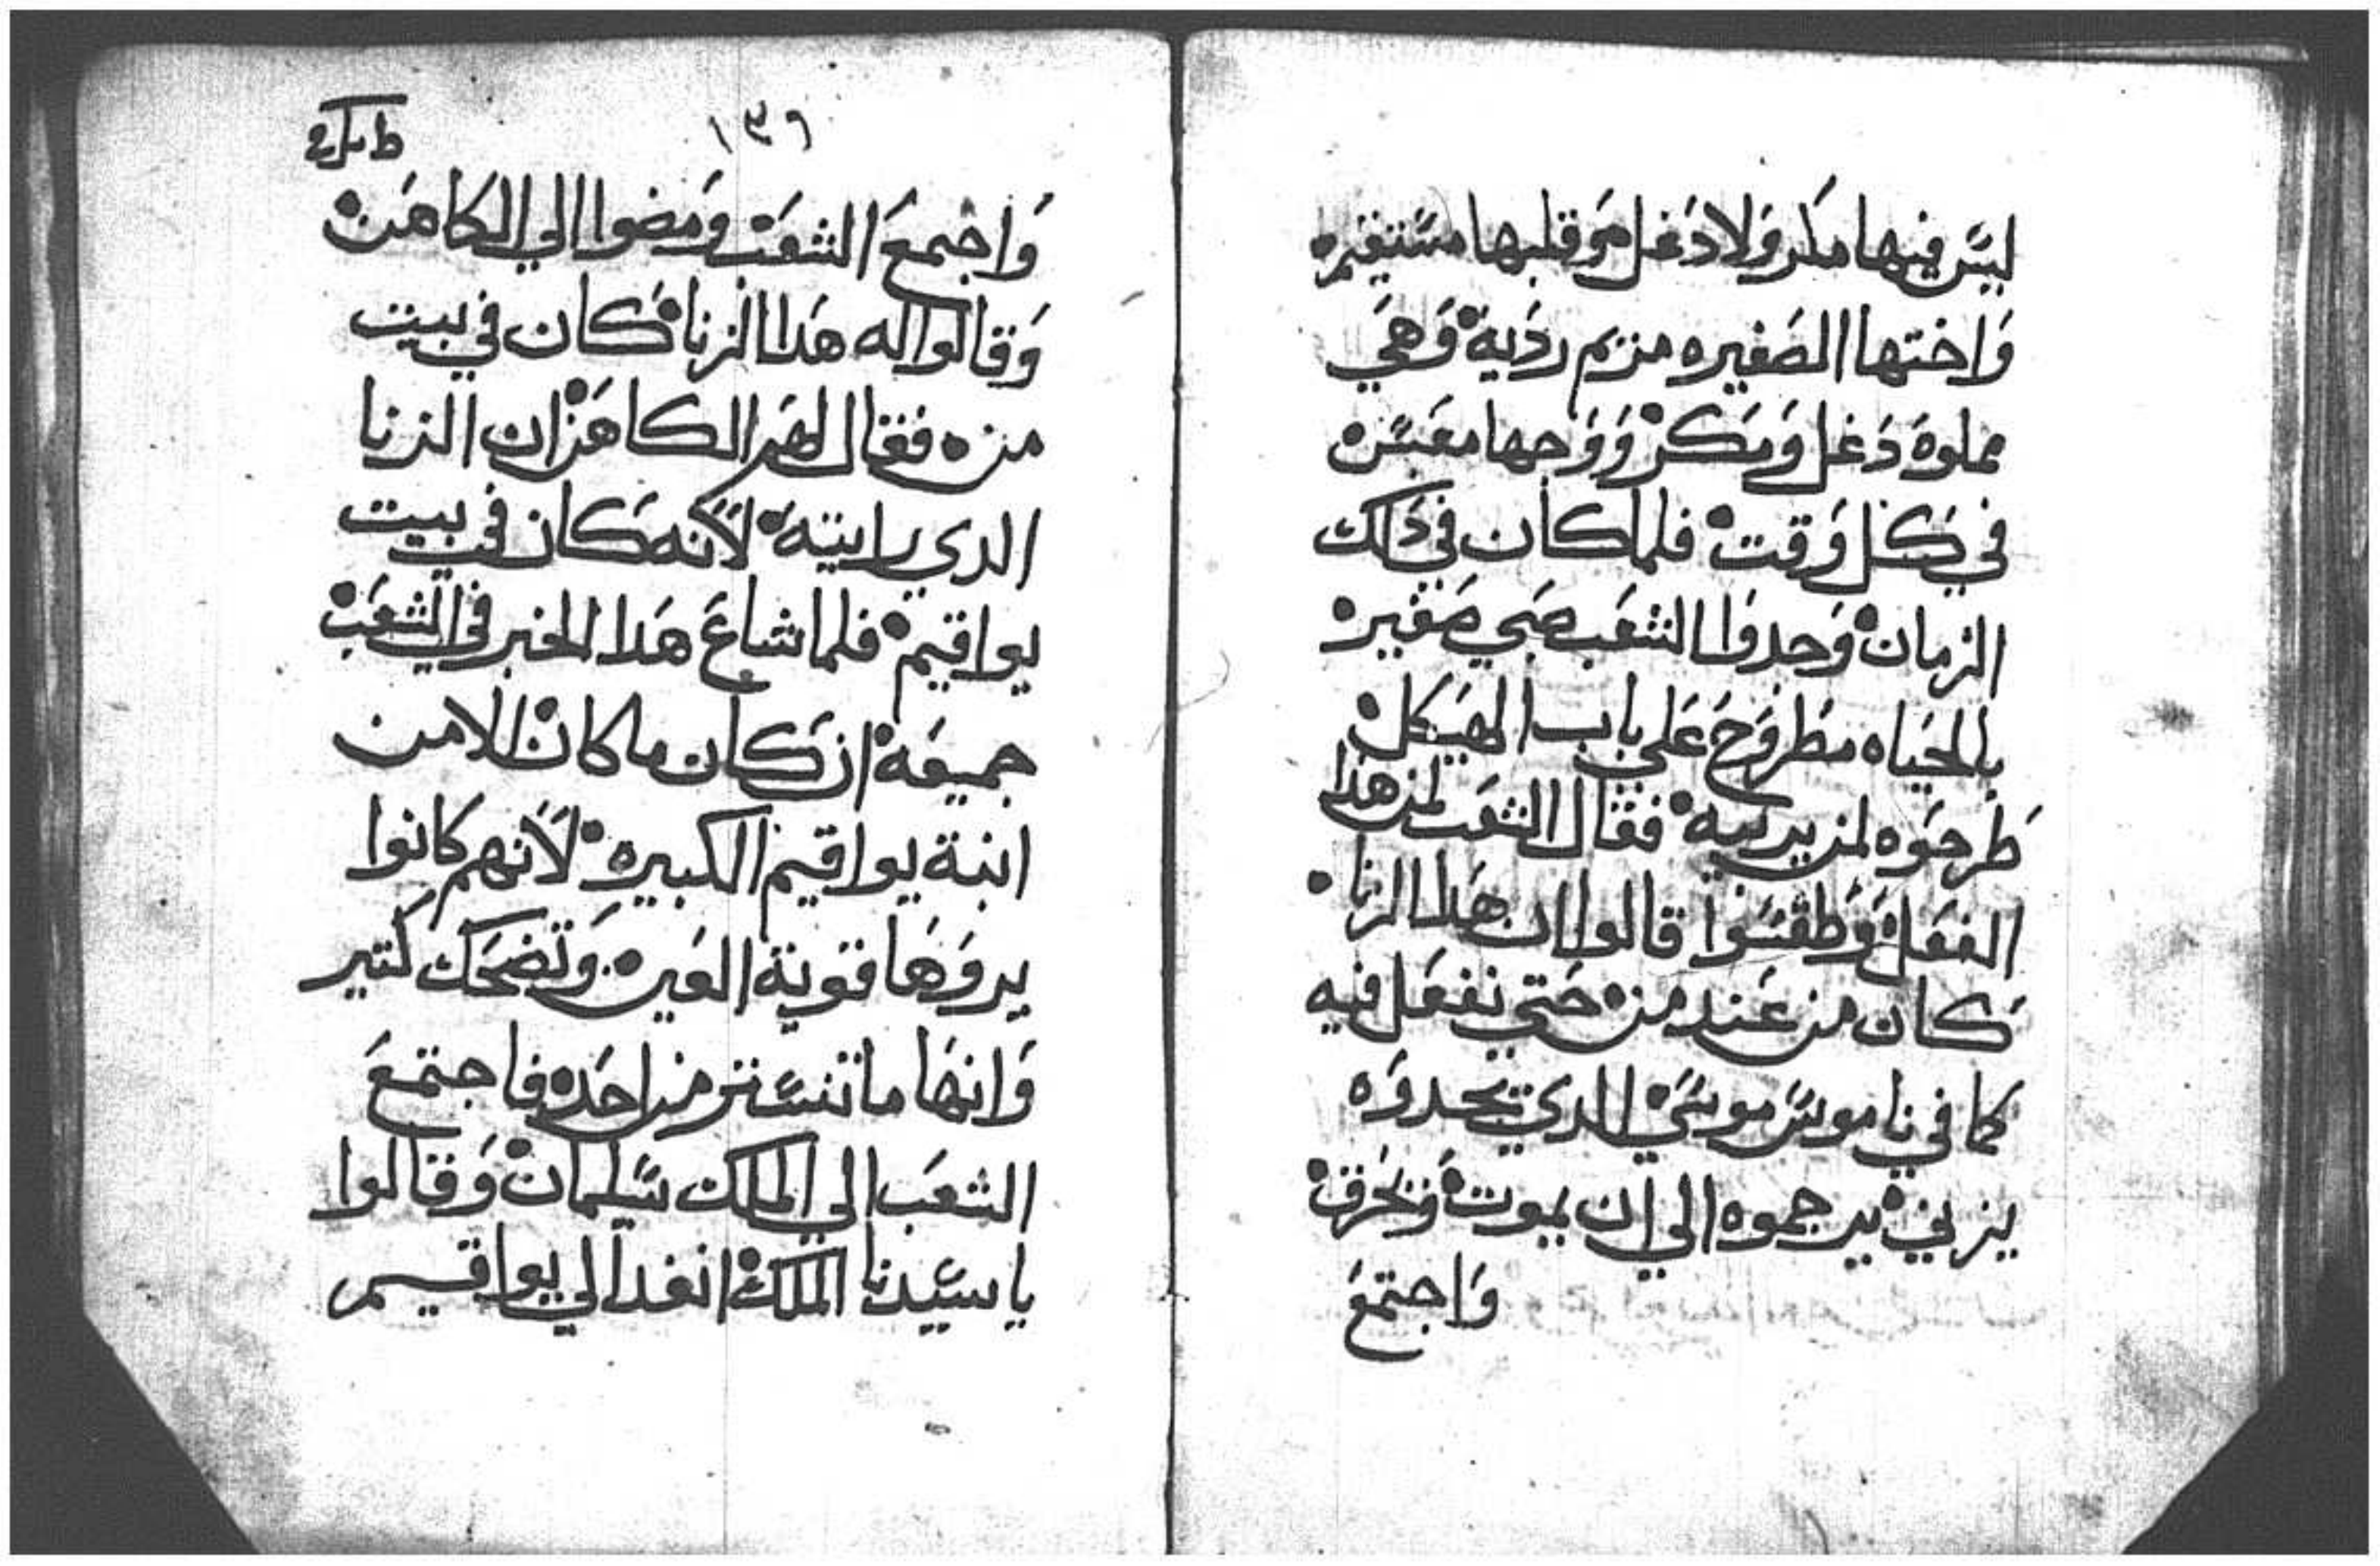 ليس فيها مكر ولا دغل وقلبها مستقيم
واختها الصغيره مريم رديه وهي
مملوه دغل ومكر ووجهها معبس
في كل وقت فلما كان في داك
الزمان وجدوا الشعب صبي صغير
بالحياه مطروح على باب الهيكل
طرحوه لمن يربيه فقال الشعب لمن هدا
الفعل وطقسوا قالوا ان هدا الزنا
كان من عند من حتي نفعل فيه
كما في ناموس موسي الدي يجدوه
يزني يرجموه الي ان يموت ويحرق
واجتمع
١٣٩
واجتمع الشعب ومضوا الي الكاهن
وقالوا له هدا الزنا كان في بيت
من ه فقال لهم الكاهن ان الزنا
الدي رايته لانه كان في بيت
يواقيم فلما شاع هدا الخبر في الشعب
جميعه ان كان ما كان الا من
ابنة يواقيم الكبيره لانهم كانوا
يروها قوية العين وتضحك كتير
وانها ما تنستر من احد فاجتمع
الشعب الي الملك سليمان وقالوا
يا سيدنا الملك انفد الي يواقيم